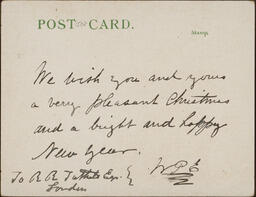 POST CARD.
Stamp.
We wish you and yours
a very pleasant Christmas
and a bright and happy
New Year.
To R R Esq.
London